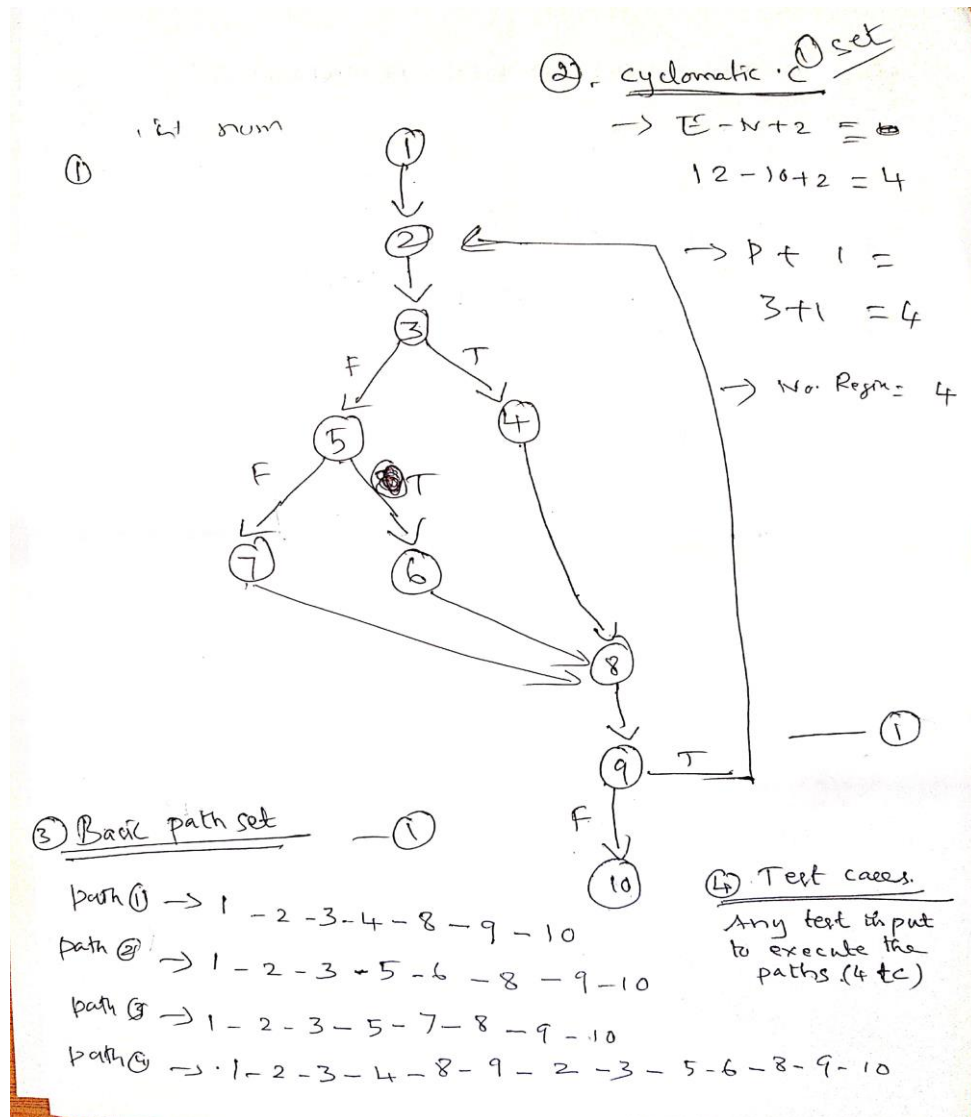 ②. cyclomatic .c ① set
int num
①
→ E - N + 2 =
12 - 10 + 2 = 4
→ P + 1 =
3 + 1 = 4
→ No. Region = 4
1
2
3
F T
5 4
F T
7 6
8
9 T — ①
F
10
③ Basic path set — ①
path ① → 1 - 2 - 3 - 4 - 8 - 9 - 10
path ② → 1 - 2 - 3 - 5 - 6 - 8 - 9 - 10
path ③ → 1 - 2 - 3 - 5 - 7 - 8 - 9 - 10
path ④ → 1 - 2 - 3 - 4 - 8 - 9 - 2 - 3 - 5 - 6 - 8 - 9 - 10
④ Test cases.
Any test input
to execute the
paths. (4 tc)